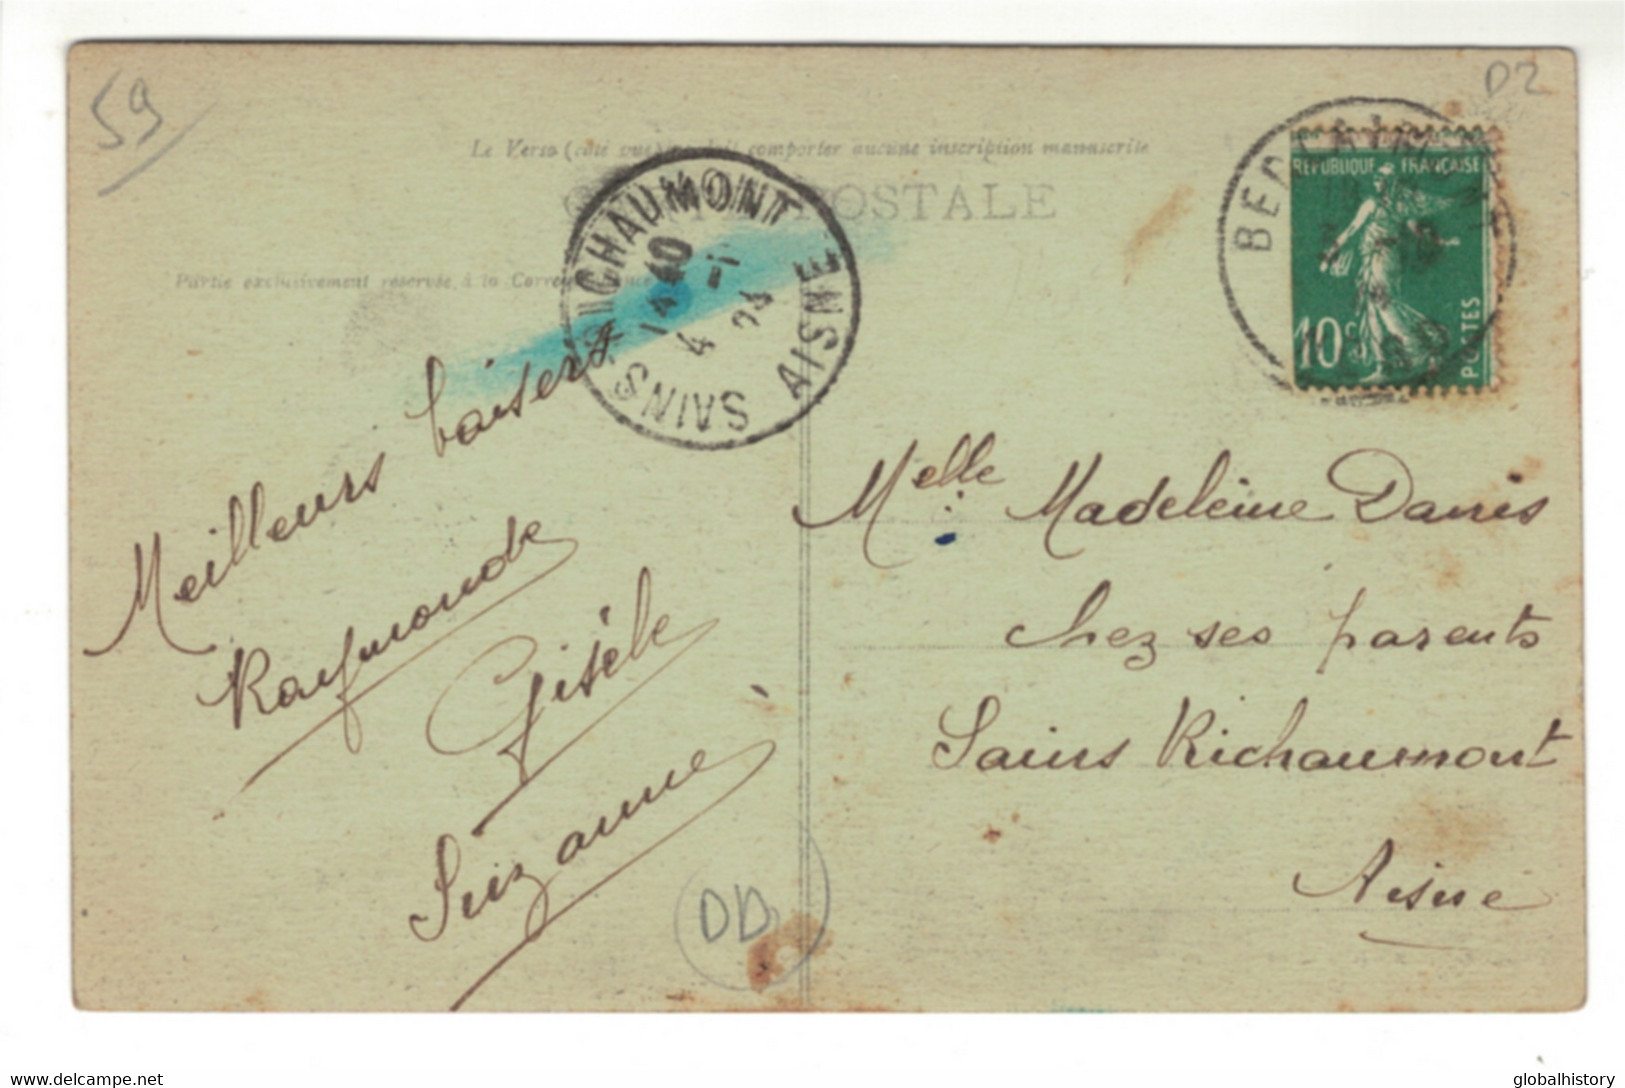 59
D2
Le Verso (côté vue) comporter aucune inscription manuscrite
POSTALE
Partie exclusivement réservée à la
SAINS RICHAUMONT
AISNE
10
4 -1
24
REPUBLIQUE FRANÇAISE
10c
POSTES
Meilleurs baisers
Raymonde
Gisèle
Suzanne
Melle Madeleine Danis
chez ses parents
Sains Richaumont
Aisne
DD
www.delcampe.net
globalhistory